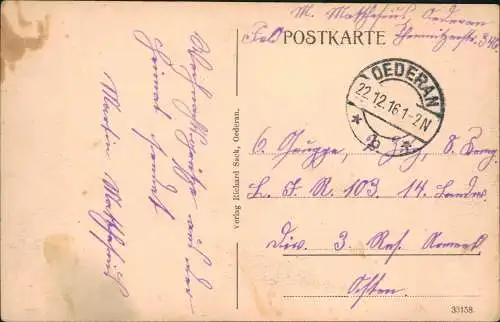 M. Matthesius, Oederan
Chemnitzerstr.
POSTKARTE
OEDERAN
22.12.16 1-2N
* b *
Weihnachtsgrüße aus der
Heimat sendet
Martin Matthesius
Verlag Richard Sack, Oederan.
6. Gruppe, 2. Zug, 8. Komp.
L. I. R. 103. 14. Landw.
Div. 3. Res.
Osten
33158